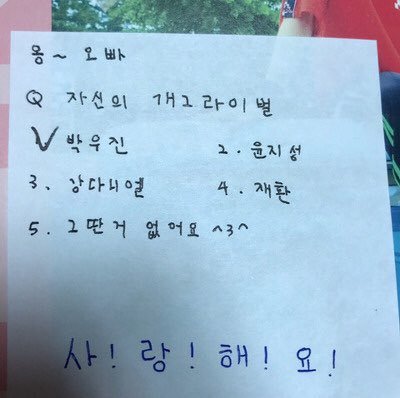 옹~ 오빠
Q 자신의 개그라이벌
V 박우진 2. 윤지성
3. 강다니엘 4. 재환
5. 그딴거 없어요 ^3^
사! 랑! 해! 요!